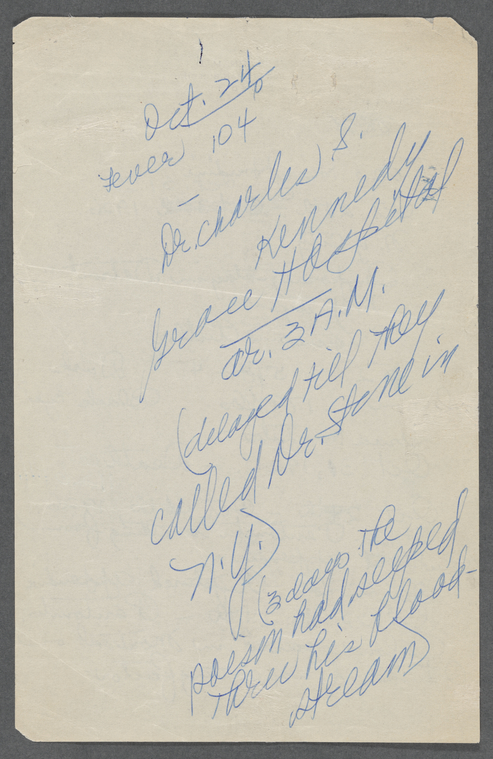 Oct. 24
Fever 104
Dr. Charles S.
Kennedy
Grace Hospital
ar. 3 A.M.
(delayed till they
called Dr. Stone in
N.Y.)
(3 days the
poison had seeped
thru his blood-
stream)